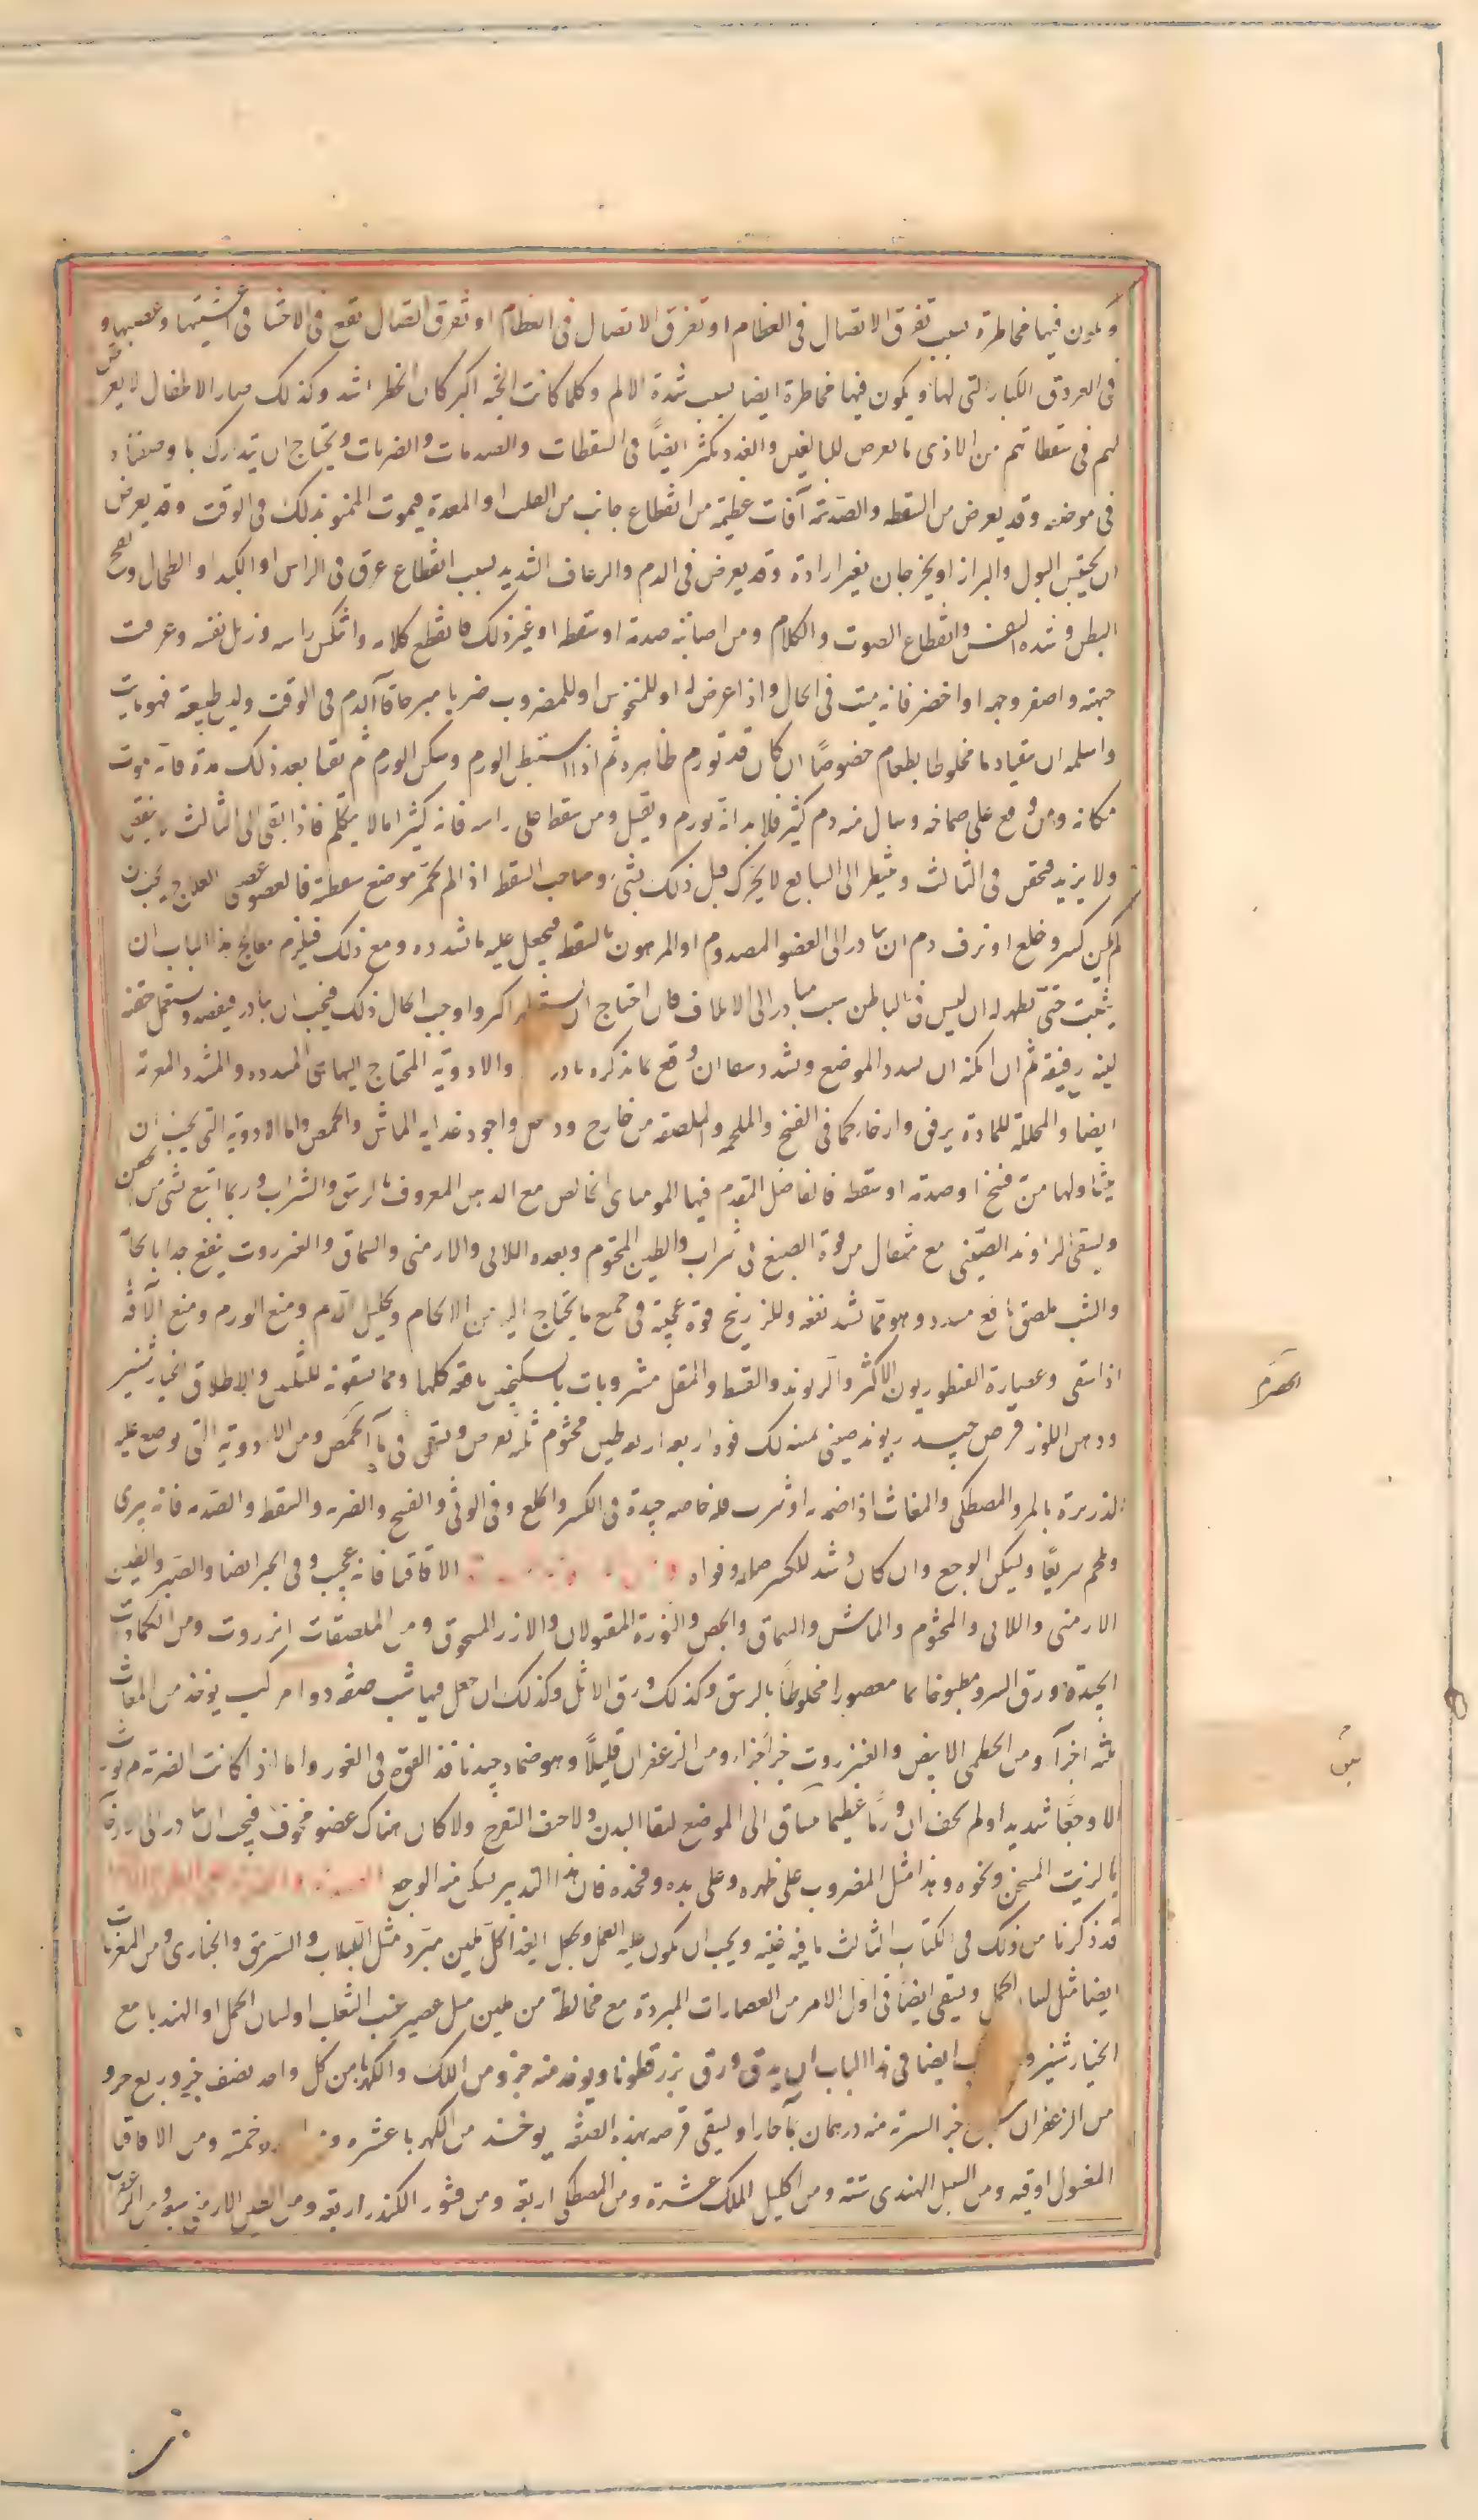 ويكون فيها مخاطرة بسبب تفرق الاتصال فى العظام او تفرق الاتصال فى العظام او تفرق اتصال يقع فى الاحشا فى اغشيتها وعصبها و
فى العروق الكبار التى لها ويكون فيها مخاطرة ايضا بسبب شدة الالم وكلما كانت الجثه اكبر كان الخطر اشد وكذلك صار الاطفال لا يعرض
لهم فى سقطاتهم من الاذى ما يعرض للبالغين والغدد يكثر ايضًا فى السقطات والصدمات والضربات ويحتاج ان يتدارك بما وصفناه
فى موضعه وقد يعرض من السقطه والصدمة آفات عظيمة من انقطاع جانب من القلب او المعدة فيموت الممنو بذلك فى الوقت وقد يعرض
ان يحتبس البول والبراز او يخرجان بغير ارادة وقد يعرض قى الدم والرعاف الشديد بسبب انقطاع عرق فى الراس او الكبد او الطحال ونفخ
البطن وشده النفس وانقطاع الصوت والكلام ومن اصابته صدمة او سقطه او غير ذلك فانقطع كلامه وانتكس راسه وذبل نفسه وعرقت
جبهته واصفر وجهه او اخضر فانه ميت فى الحال واذا عرض له او للمنخوس او للمضروب ضربا مبرحا قاآ الدم فى الوقت ولين طبيعة فهو مايت
واسلمه ان يتقيا دما مخلوطا بطعام خصوصًا ان كان قد تورم ظاهره ثم اذا استبطن الورم وسكن الورم ثم تقيا بعد ذلك مدة فانه يموت
مكانه ومن وقع على صماخه وسال منه دم كثير فلا بد انه يورم ويقتل ومن سقط على راسه فانه كثيرا ما لا يتكلم فاذا بقى الى الثالث لا ينقص
ولا يزيد فيحقن فى الثالث وينتظر الى السابع لا يحرك قبل ذلك بشى وصاحب السقطه اذا لم يحمر موضع سقطته فالعضو عصبى العلاج يجب ان
لم يكن كسر وخلع او نزف دم ان يبادر الى العضو المصدوم او المرهون بالسقطه فيجعل عليه ما شدده ومع ذلك فيلزم معالج هذا الباب ان
يثبت حتى يظهر له ان ليس فى الباطن سبب مبادر الى الاتلاف فان احتاج الى اكبر واوجب الحال ذلك فيجب ان يبادر فيفصد ويستعمل حقنة
لينة رفيقة ثم ان امكنه ان يسدد الموضع ويشدد معا ان وقع بما نذكره بادر والادوية المحتاج اليها هى المسدده والمشدده المغرية
ايضا والمحللة للمادة برفق وارخاء كما فى الفسخ والملحمه والملصقه من خارج وداخل واجود غذايه الماش والحمص واما الادوية التى يجب ان
يتناولها من به فسخ او صدمه او سقطه فالفاضل المقدم فيها المومياى الخالص مع الدهن المعروف بالزنبق والشراب وربما اتبع بشى من
ويسقى الراوند الصينى مع مثقال من فوة الصبغ فى شراب والطين المختوم وبعده اللانى والارمنى والسماق والعنزروت ينفع جدا بالحام
والشب ملصق نافع مسدد وهو مما شدد نفعه وللزرنيخ قوة عجيبة فى جميع ما يحتاج اليه من الالحام وتحليل الدم ومنع الورم ومنع الآفة
اذا سقى وعصارة القنطوريون الاكثر والريوند والقسط والمقل مشروبات بالسكنجبين نافعه كلها ومما يسقونه للتليين والاطلاق الخيار شنبر
ودهن اللوز قرص جيد ريوند صينى لك فوه اربعه اربعه طين مختوم ثلثه يقرص ويسقى فى مآ الحمص ومن الادوية التى يوضع عليه
الذريرة بالمر والمصطكى والمغاث اذا ضمد به او شرب فله خاصه جيدة فى الكسر والخلع وفى الوثى والفسخ والضربه والسقطه والصدمه فانه يبرى
ولحم سريعًا ويسكن الوجع وان كان شد للكسر صلبه وقواه الاقاقيا فانه عجيب وفى الجبر ايضا والصبر والطين
الارمنى واللانى والمختوم والماش والسماق والجص والنورة المغسولان والارز المسحوق ومن الملصقات انزروت ومن الكمادات
الجيدة ورق السرو مطبوخا بما معصورا مخلوطًا بالزبيق وكذلك ورق الاثل وكذلك ان جعل فيها شب صفة دوا مركب يوخذ من المغاث
ثلثه اجزآ ومن الخطمى الابيض والعنزروت جزآ جزاء ومن الزعفران قليلًا وهو ضماد جيد نافذ القوه فى الغور واما اذا كانت الضربة لم يورث
الا وجعًا شديدا ولم يخف ان ورمًا عظيما يساق الى الموضع لنقا البدن ولا خيف التقرح ولا كان هناك عضو مخوف فيجب ان يبادر الى ارخآ
بالزيت المسخن ونحوه وهذا مثل المضروب على ظهره وعلى يده وفخذه فان هذا التدبير يسكن منه الوجع
قد ذكرنا من ذلك فى الكتاب الثالث ما فيه غنيه ويجب ان يكون عليه العمل ويجعل الغذا كل ملين مبرد مثل اللبلاب والسرمق والخبازى ومن المغريات
ايضا مثل لسان الحمل ويسقى ايضًا فى اول الامر من العصارات المبردة مع مخالطة من ملين مثل عصير عنب الثعلب او لسان الحمل او الهندبا مع
الخيار شنبر و ايضا فى هذا الباب ان يدق ورق بزر قطونا ويوخذ منه جزو ومن اللك والكهربا من كل واحد نصف جزو ربع جزو
من الزعفران جزء الشربة منه درهمان بمآ حارا ويسقى قرصه بهذه الصفه يوخذ من الكهربا عشره و خمسة ومن الاقاقيا
المغسول اوقيه ومن السنبل الهندى ستة ومن اكليل الملك عشرة ومن المصطكى اربعة ومن قشور الكندر اربعة ومن الطين الارمنى سبعة ومن الزعفران